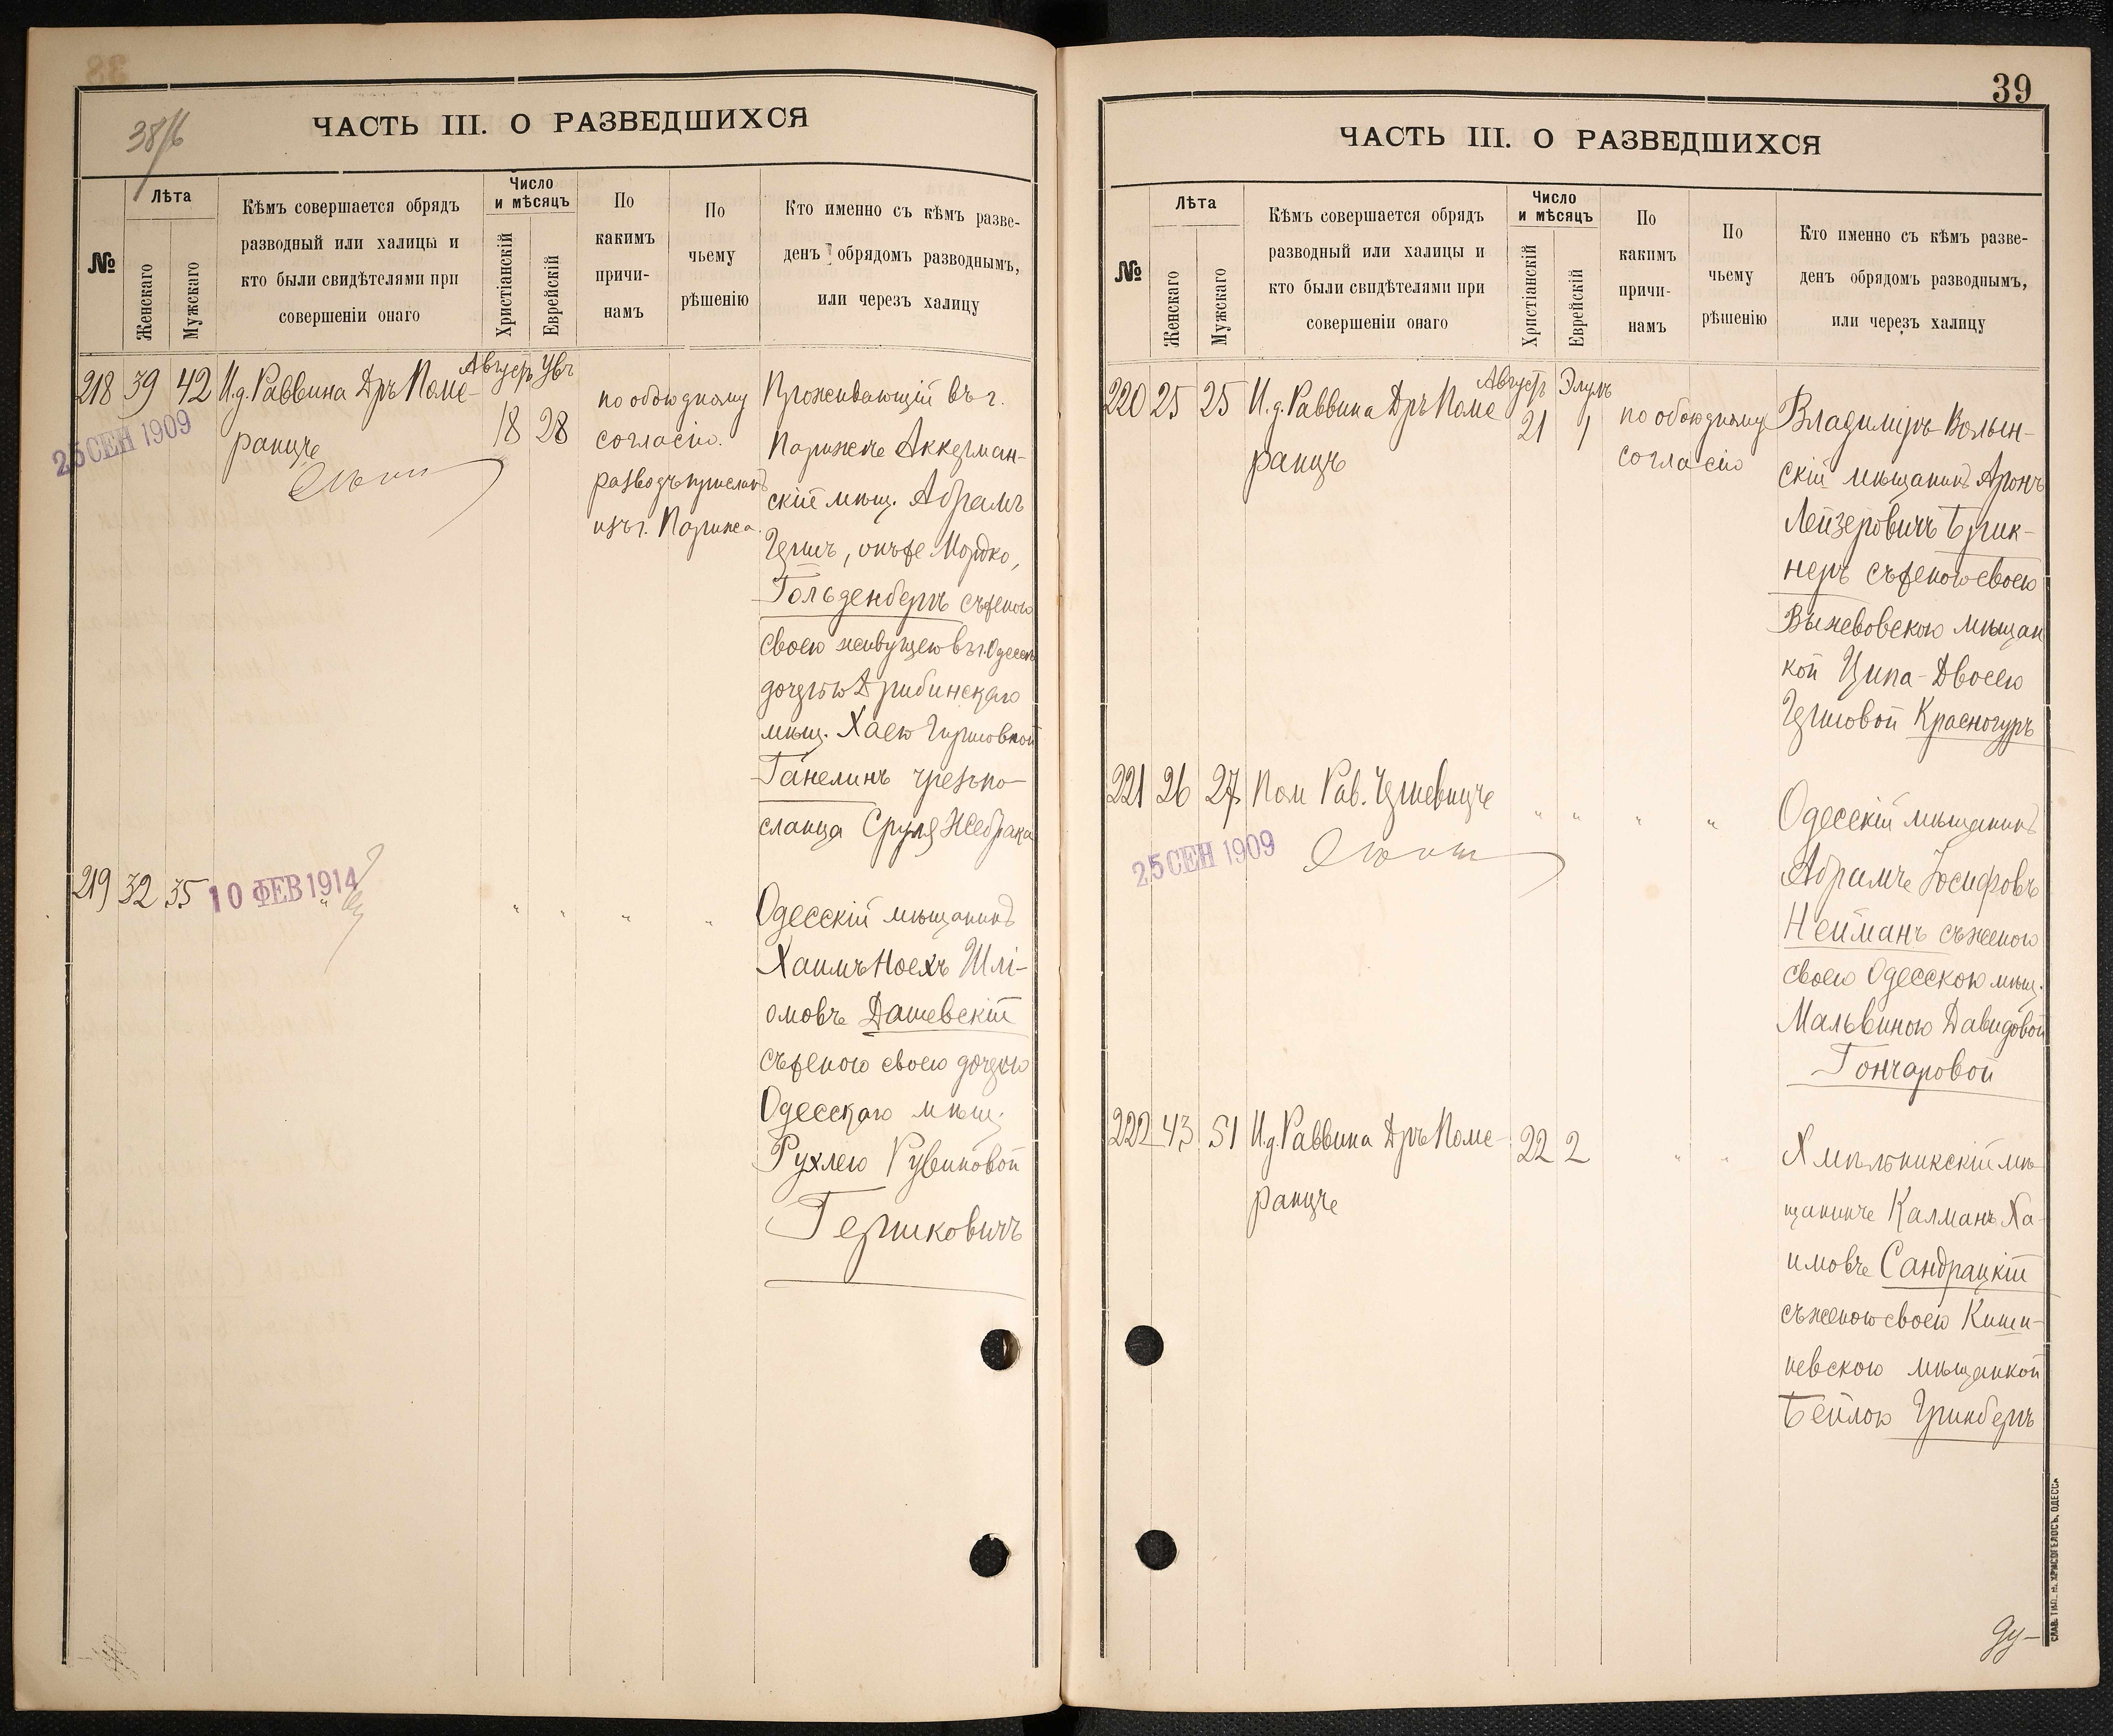 38
38/б
ЧАСТЬ III. О РАЗВЕДШИХСЯ
№
Лѣта
Женскаго
Мужскаго
Кѣмъ совершается обрядъ
разводный или халицы и
кто были свидѣтелями при
совершеніи онаго
Число
и мѣсяцъ
Христіанскій
Еврейскій
По
какимъ
причи-
намъ
По
чьему
рѣшенію
Кто именно съ кѣмъ разве-
денъ обрядомъ разводнымъ,
или черезъ халицу
218 39 42
И.д. Раввина Дръ Поме-
ранцъ
25 СЕН 1909
Августъ
18 28
по обоюдному
согласію.
разводъ присланъ
изъ г. Парижа.
Проживающій въ г.
Парижѣ Аккерман-
скій мѣщ. Абрамъ
Гершъ, онъ же Мордко,
Гольденбергъ съ женою
своею живущею въ г. Одессѣ
дочерью Дрибинскаго
мѣщ. Хаею Гершовной
Ганелинъ чрезъ по-
сланца Сруля Жебрака
219 32 35
10 ФЕВ 1914
" " " " "
Одесскій мѣщанинъ
Хаимъ Ноехъ Шлі-
омовъ Дашевскій
съ женою своею дочерью
Одесскаго мѣщ.
Рухлею Рувиновой
Гершковичъ
39
ЧАСТЬ III. О РАЗВЕДШИХСЯ
№
Лѣта
Женскаго
Мужскаго
Кѣмъ совершается обрядъ
разводный или халицы и
кто были свидѣтелями при
совершеніи онаго
Число
и мѣсяцъ
Христіанскій
Еврейскій
По
какимъ
причи-
намъ
По
чьему
рѣшенію
Кто именно съ кѣмъ разве-
денъ обрядомъ разводнымъ,
или черезъ халицу
220 25 25
И.д. Раввина Дръ Поме
ранцъ
Августъ Элулъ
21 1
по обоюдному
согласію
Владиміръ Волын-
скій мѣщанинъ Аронъ
Лейзеровичъ Брик-
неръ съ женою своею
Выжевовскою мѣщан
кой Ципа-Двосею
Гершовой Красногуръ
221 26 27
Пом Рав.
25 СЕН 1909
" " " "
Одесскій мѣщанинъ
Абрамъ Іосифовъ
Нейманъ съ женою
своею Одесскою мѣщ.
Мальвиною Давидовой
Гончаровой
222 43 51
И.д. Раввина Дръ Поме-
ранцъ
22 2
" "
Хмѣльникскій мѣ-
щанинъ Калманъ Ха-
имовъ Сандрацкій
съ женою своею Киши-
невскою мѣщанкой
Бейлою Гринбергъ
СЛАВ. ТИП. Н. ХРИСОГЕЛОСЪ, ОДЕССА